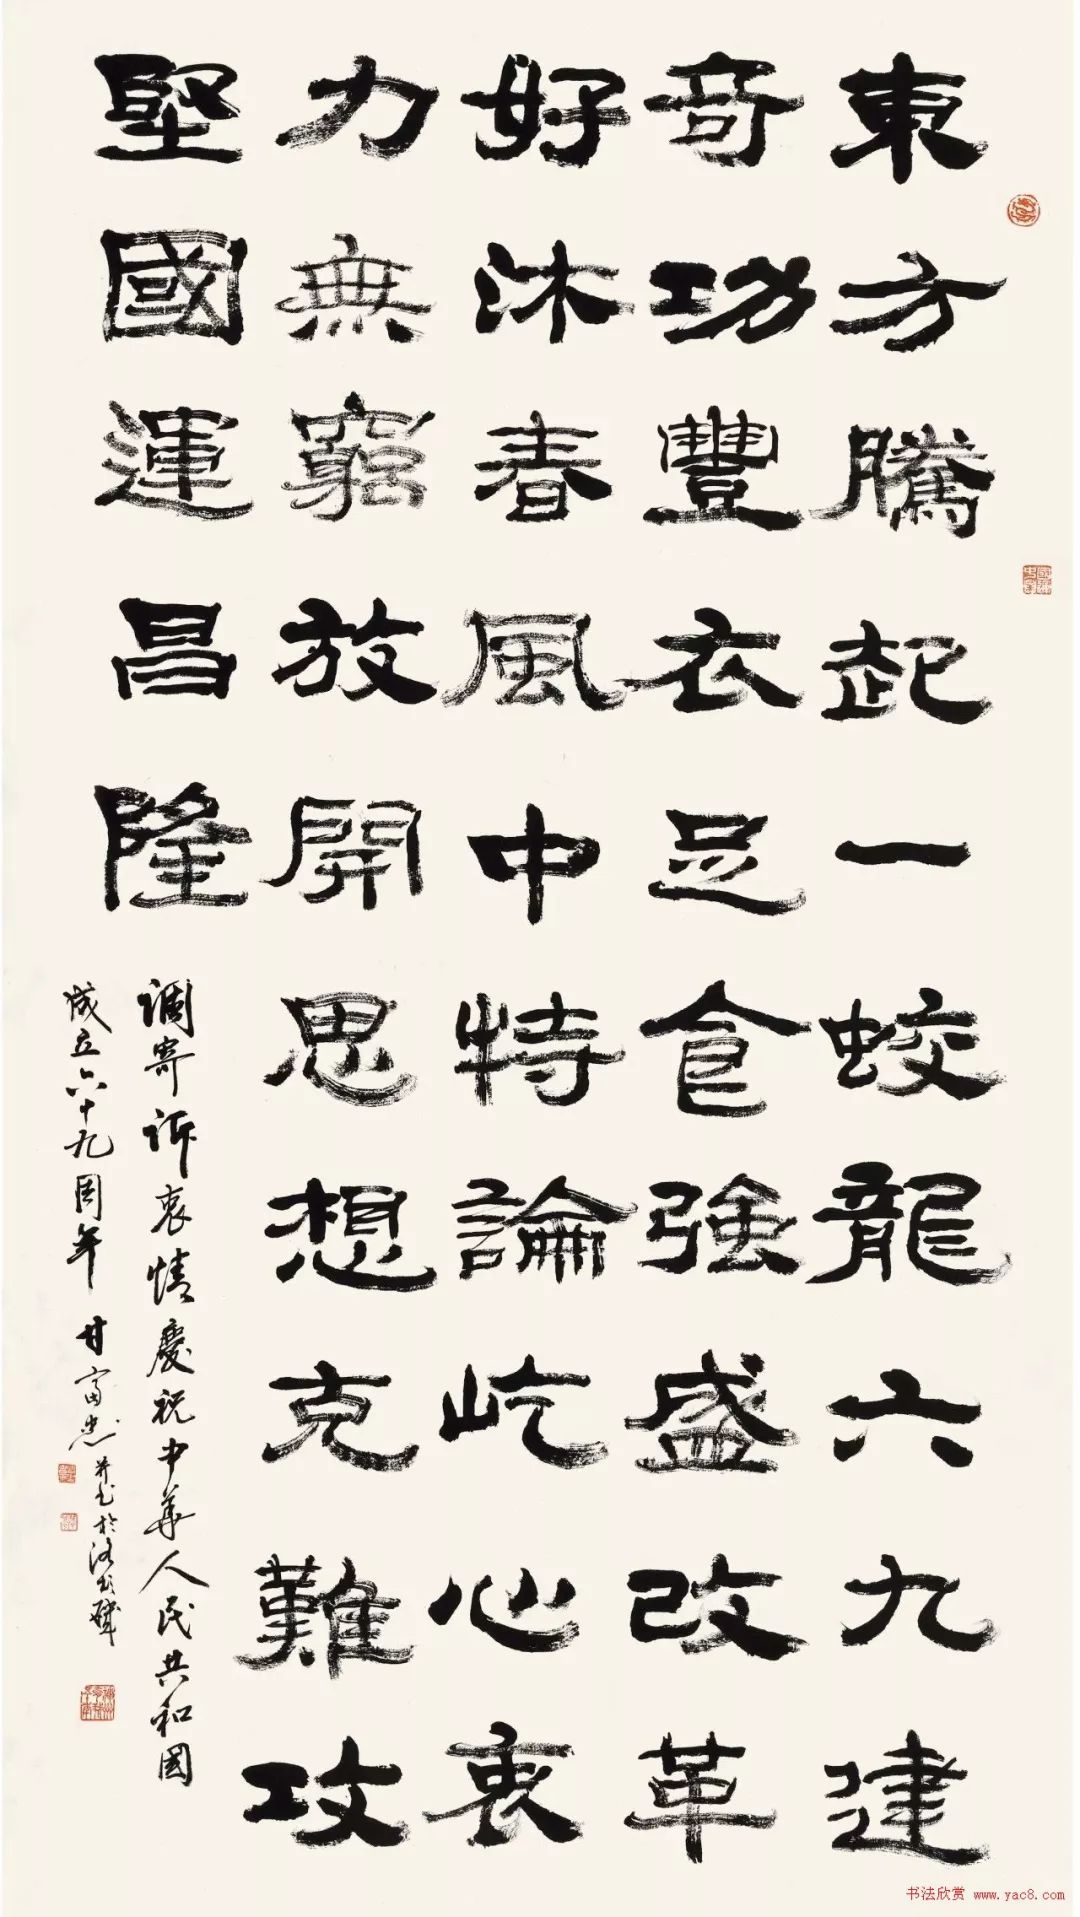 東方騰起一蛟龍六九建
奇功豐衣足食強盛改革
好沐春風中特論屹心衷
力無窮放開思想克難攻
堅國運昌隆
調寄訴衷情慶祝中華人民共和國
成立六十九周年甘富忠并书於
书法欣赏 www.yac8.com